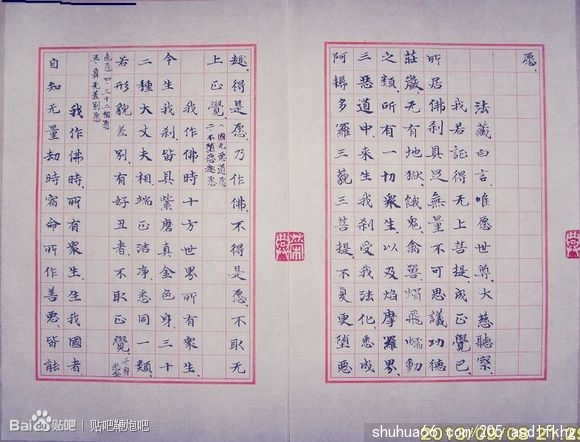 愿、
法藏白言、唯愿世尊、大慈聽察、
我若証得无上菩提、成正覺已、
所居佛剎、具足無量不可思議功德
莊嚴、无有地獄、餓鬼、禽獸、蜎飛蠕動
之類、所有一切衆生、以及焰摩羅界、
三惡道中、來生我剎、受我法化、悉成
阿耨多羅三藐三菩提、不复更墮惡
趣、得是愿、乃作佛、不得是愿、不取无
上正覺、一、國无惡道愿 二、不墮惡趣愿
我作佛時、十方世界所有衆生、
今生我剎、皆具紫磨真金色身、三十
二種大丈夫相、端正洁净、悉同一類、
若形貌差別、有好丑者、不取正覺、三、身悉金
色愿 四、三十二相愿
五、身无差別愿
我作佛時、所有衆生、生我國者
自知无量劫時宿命、所作善惡、皆能
Baidu贴吧 | 贴吧鞭炮吧
shuhua66.com/205